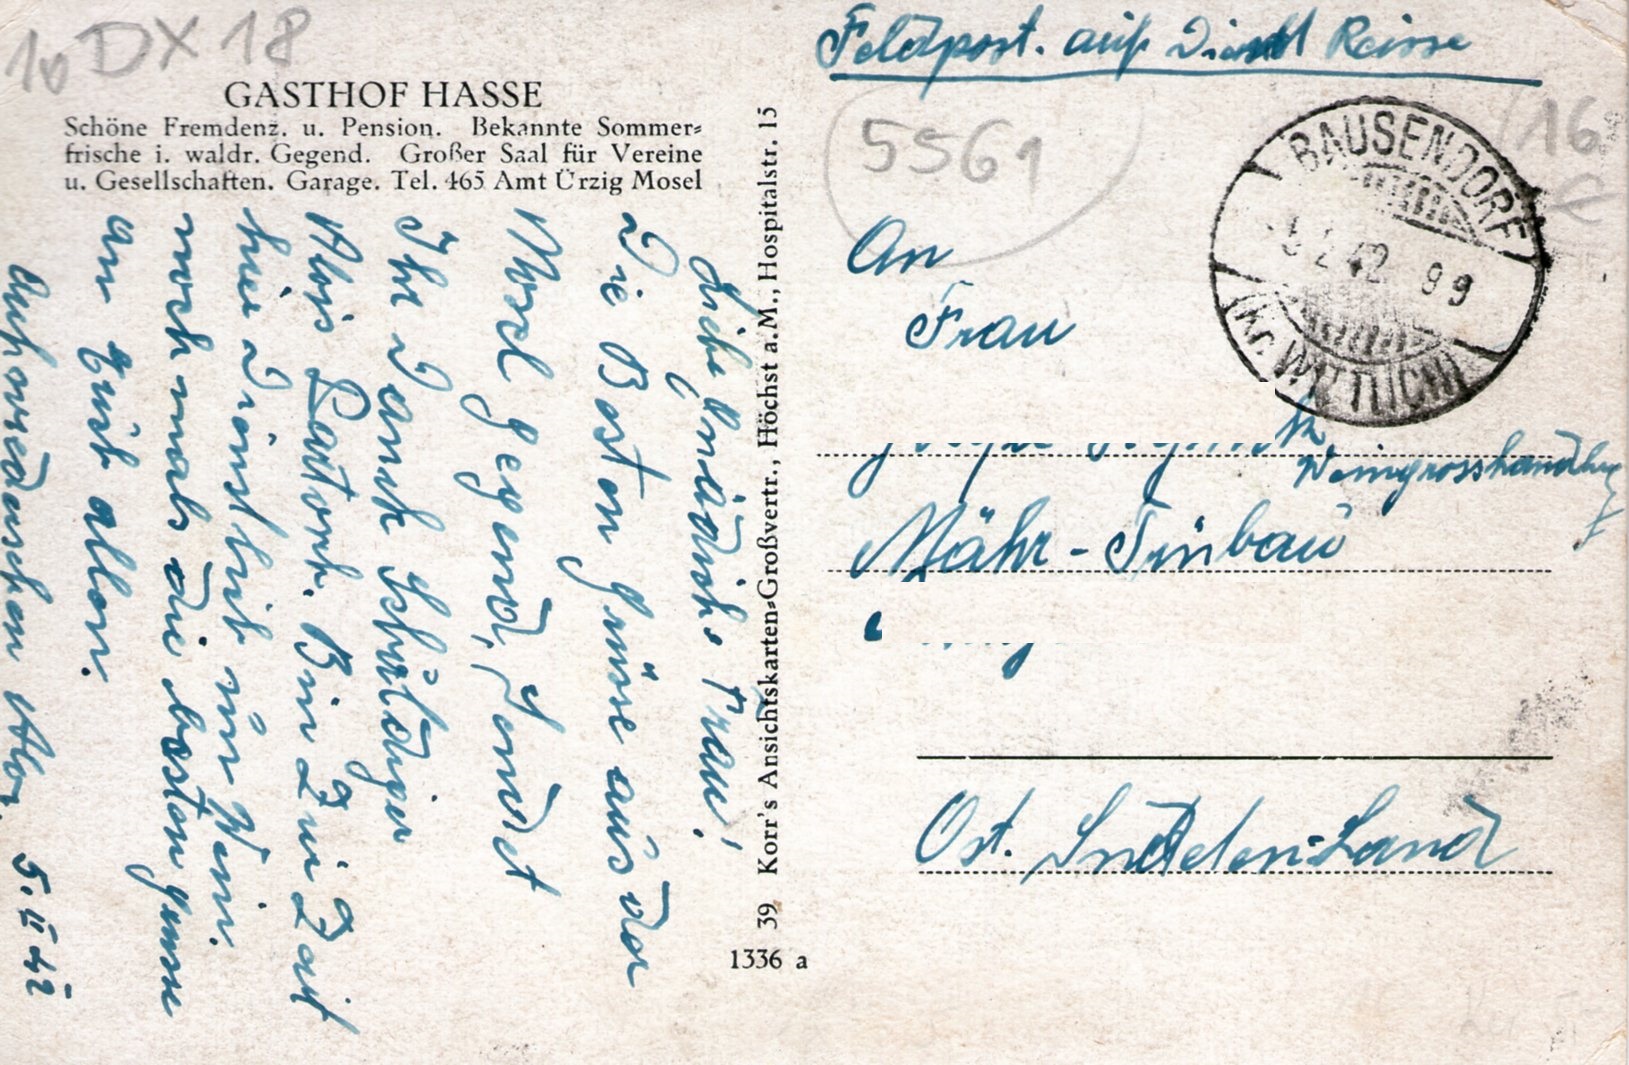 10 DX 18
GASTHOF HASSE
Schöne Fremdenz. u. Pension. Bekannte Sommer=
frische i. waldr. Gegend. Großer Saal für Vereine
u. Gesellschaften. Garage. Tel. 465 Amt Ürzig Mosel
Liebe gnädich. Frau!
Die Besten Grüsse aus der
Mosel gegend, sendet
Ihr Dank Schuldiger
Alois Bin Zur Zeit
hier Dienstlich im Wein.
noch mals die besten grüsse
an Euch allen.
Auf
5.II 42
Korr's Ansichtskarten=Großvertr., Höchst a. M., Hospitalstr. 15
39
1336 a
Feldpost. auf Dienst Reisse
5561
16
€
BAUSENDORF
5 2 42 99
(Kr. WITTLICH)
An
Frau
Weingrosshandlung
Mähr - Trübau
Ost. Sudeten-Land